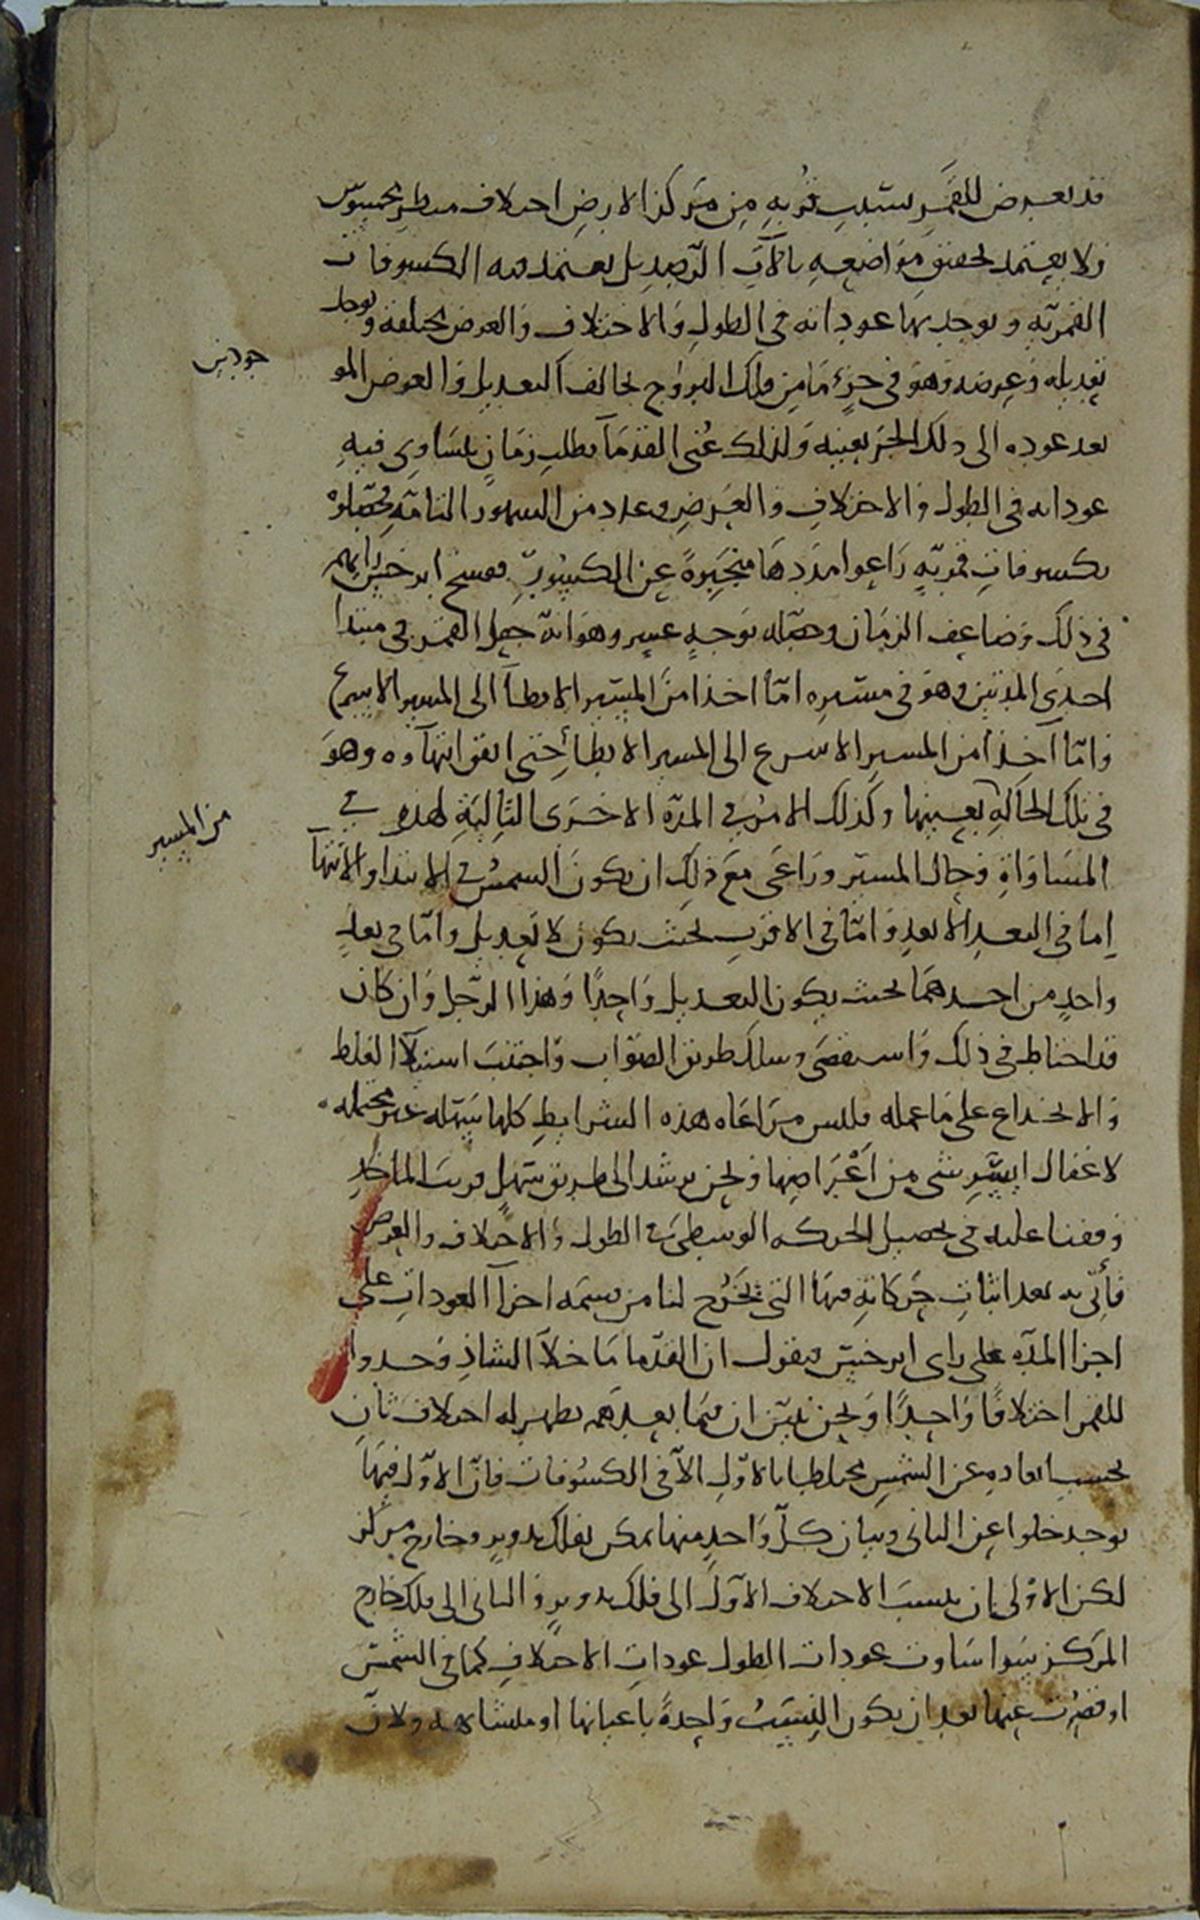 قد يعرض للقمر بسبب قربه من مركز الارض اختلاف منظر محسوس
ولا يعتمد لتحقق مواضعه بالآت الرصد بل يعتمد فيه الكسوفات
القمرية ويوجد بها عوداته في الطول والاختلاف والعرض مختلفة ويوجد
تعديله وعرضه وهو في جزء ما من فلك البروج يخالف التعديل والعرض المو
جودين
بعد عوده الى ذلك الجزء بعينه ولذلك عنى القدمآ بطلب زمان يتساوى فيه
عوداته في الطول والاختلاف والعرض وعدد من الشهور التامة
بكسوفات قمرية راعوا مددها منجبرة عن الكسور ففسخ ابرخس رايهم
في ذلك وضاعف الزمان وحصله بوجه عسر وهو انه جعل القمر في مبتدا
احدى المدتين وهو في مسيره امّا اخذا من المسير الابطأ الى المسير الاسرع
وامّا آخذا من المسير الاسرع الى المسير الابطأ حتى اتفق انتهآوه وهو
في تلك الحالة بعينها وكذلك الامر في المدة الاخرى التالية لهذه في
من المسير
المساواة وحال المسير وراعى مع ذلك ان يكون الشمس في الابتدا والانتهآ
اما في البعد الابعد وامّا في الاقرب بحيث يكون لا تعديل وامّا في بعد
واحد من احدهما بحيث يكون التعديل واحدًا وهذا الرجل وان كان
قد احتاط في ذلك واستقصى وسلك طريق الصواب واجتنب استيلآ الغلط
والانخداع على ما عمله فليس مراعاه هذه الشرايط كلها سهله غير محتمله
لاغفال ايسر شى من اعراضها ونحن نرشد الى طريق سهل قريب الماخذ
وقفنا عليه في تحصيل الحركه الوسطى في الطول والاختلاف والعرض
نأتى به بعد اثبات حركاته فيها التى تخرج لنا من قسمه اجزآ العودات على
اجزا المدّه على راى ابرخس فنقول ان القدما ما خلا الشاذ وجدوا
للقمر اختلافًا واحدًا ونحن نبين ان فيما بعدهم يظهر له اختلاف ثان
بحسب ابعاده عن الشمس مختلطا بالاوّل الآ في الكسوفات فانّ الاوّل فيها
يوجد خلوا عن الثانى وبيان كلّ واحد منهما يمكن بفلك تدوير وخارج مركز
لكن الاولى بان ينسب الاختلاف الاول الى فلك تدوير والثانى الى فلك خارج
المركز سوا ساوت عودات الطول عودات الاختلاف كما في الشمس
او قصرت عنها بعد ان يكون النسب واحدة باعيانها او متشابهه ولان